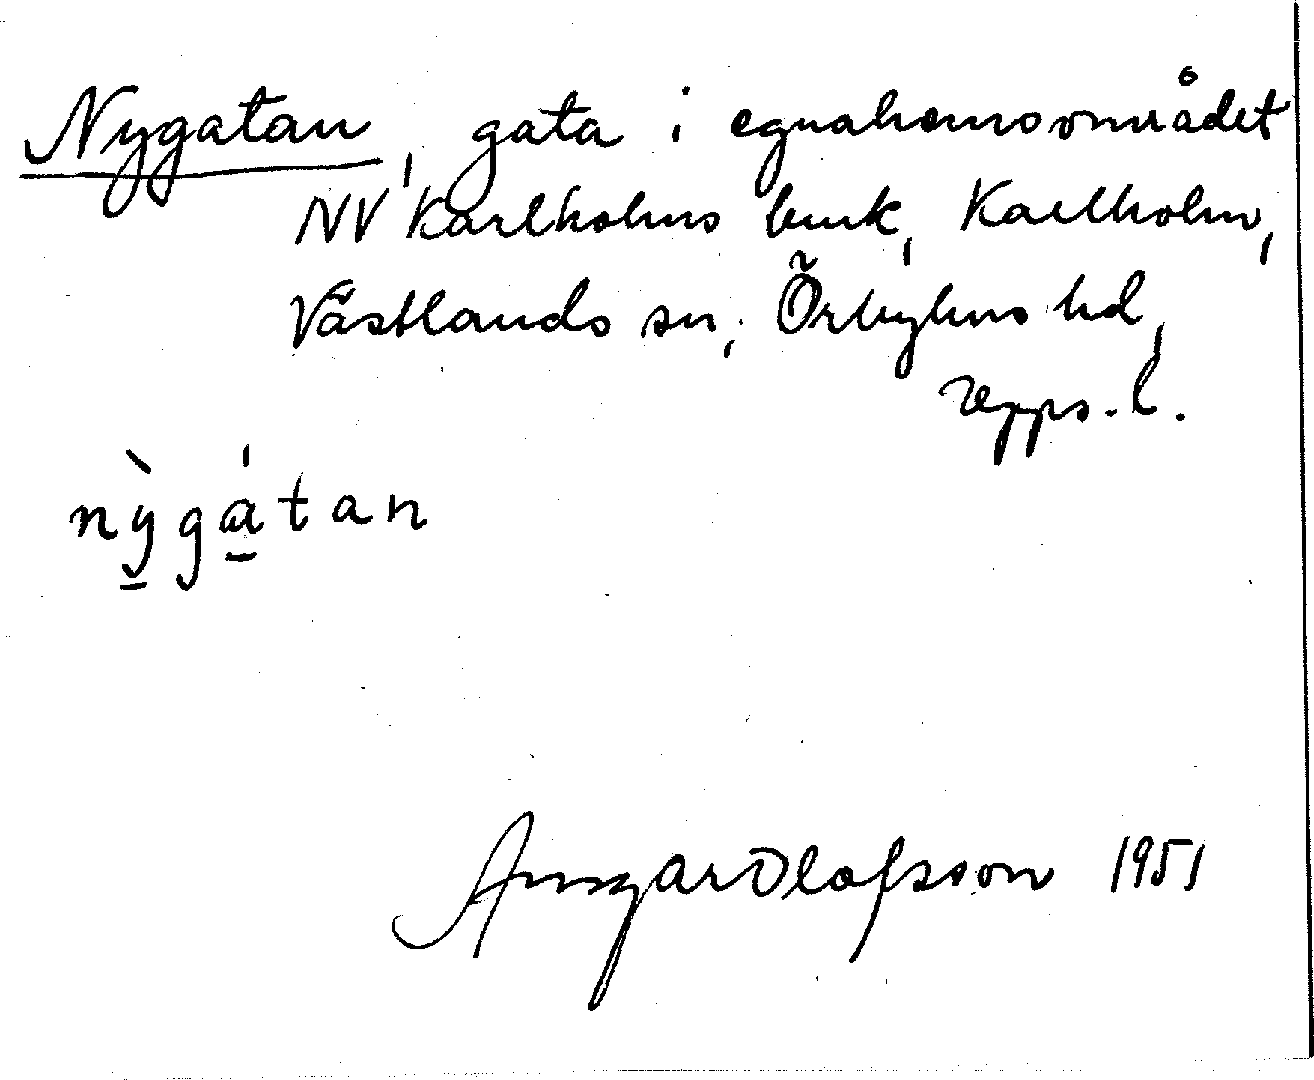 Nygatan, gata i egnahemsområdet
NV Karlholms bruk, Karlholm,
Västlands sn, Örbyhus hd,
Upps. l.
nỳgátan
Ansgar Olofsson 1951